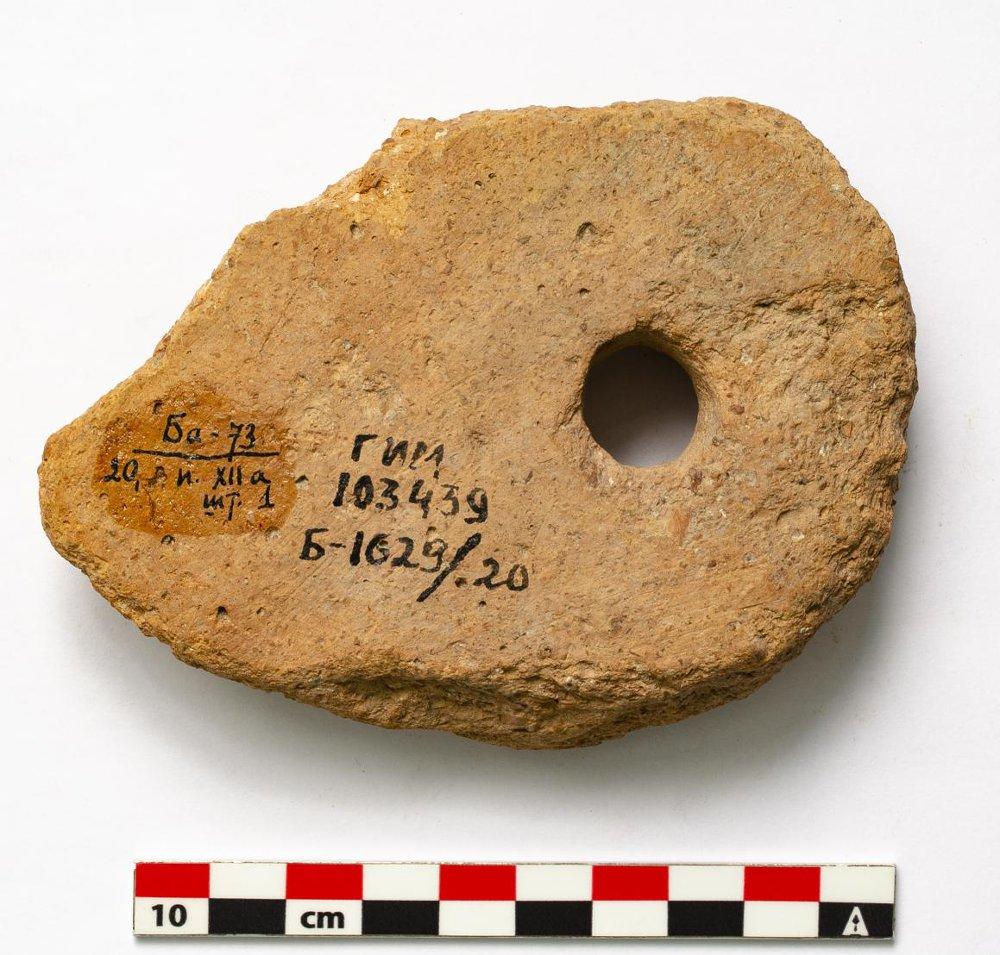 Ба-73
20, в и. XII а
шт. 1
ГИМ
103439
Б-1629/.20
10 cm